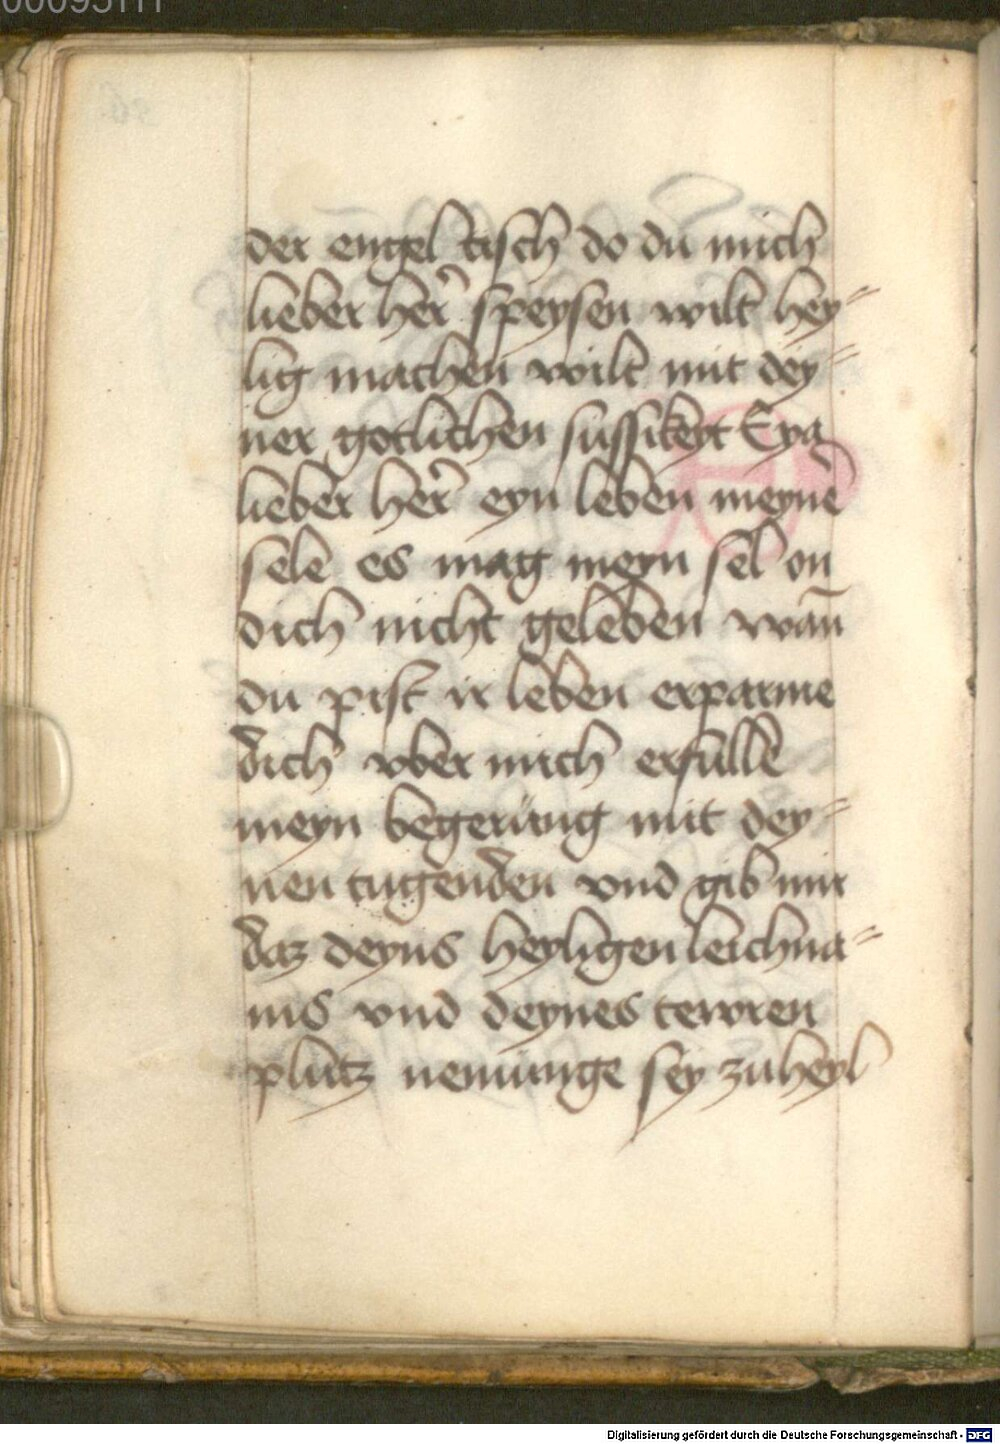 der engel tisch do du mich
lieber her speysen wilt hey⸗
lig machen wilt mit dey⸗
ner gotlichen sussikeyt Eya
lieber her eyn leben meyne͂
sele es mag meyn sel on
dich nicht geleben wan̄
du pist ir leben erparme
dich vber mich erfulle
meyn begerung mit dey⸗
nen tugenden vnd gib mir
daz deyns heyligen leichna⸗
ms vnd deynes tewren
plutz nemunge sey zu heyl
Digitalisierung gefördert durch die Deutsche Forschungsgemeinschaft - DFG